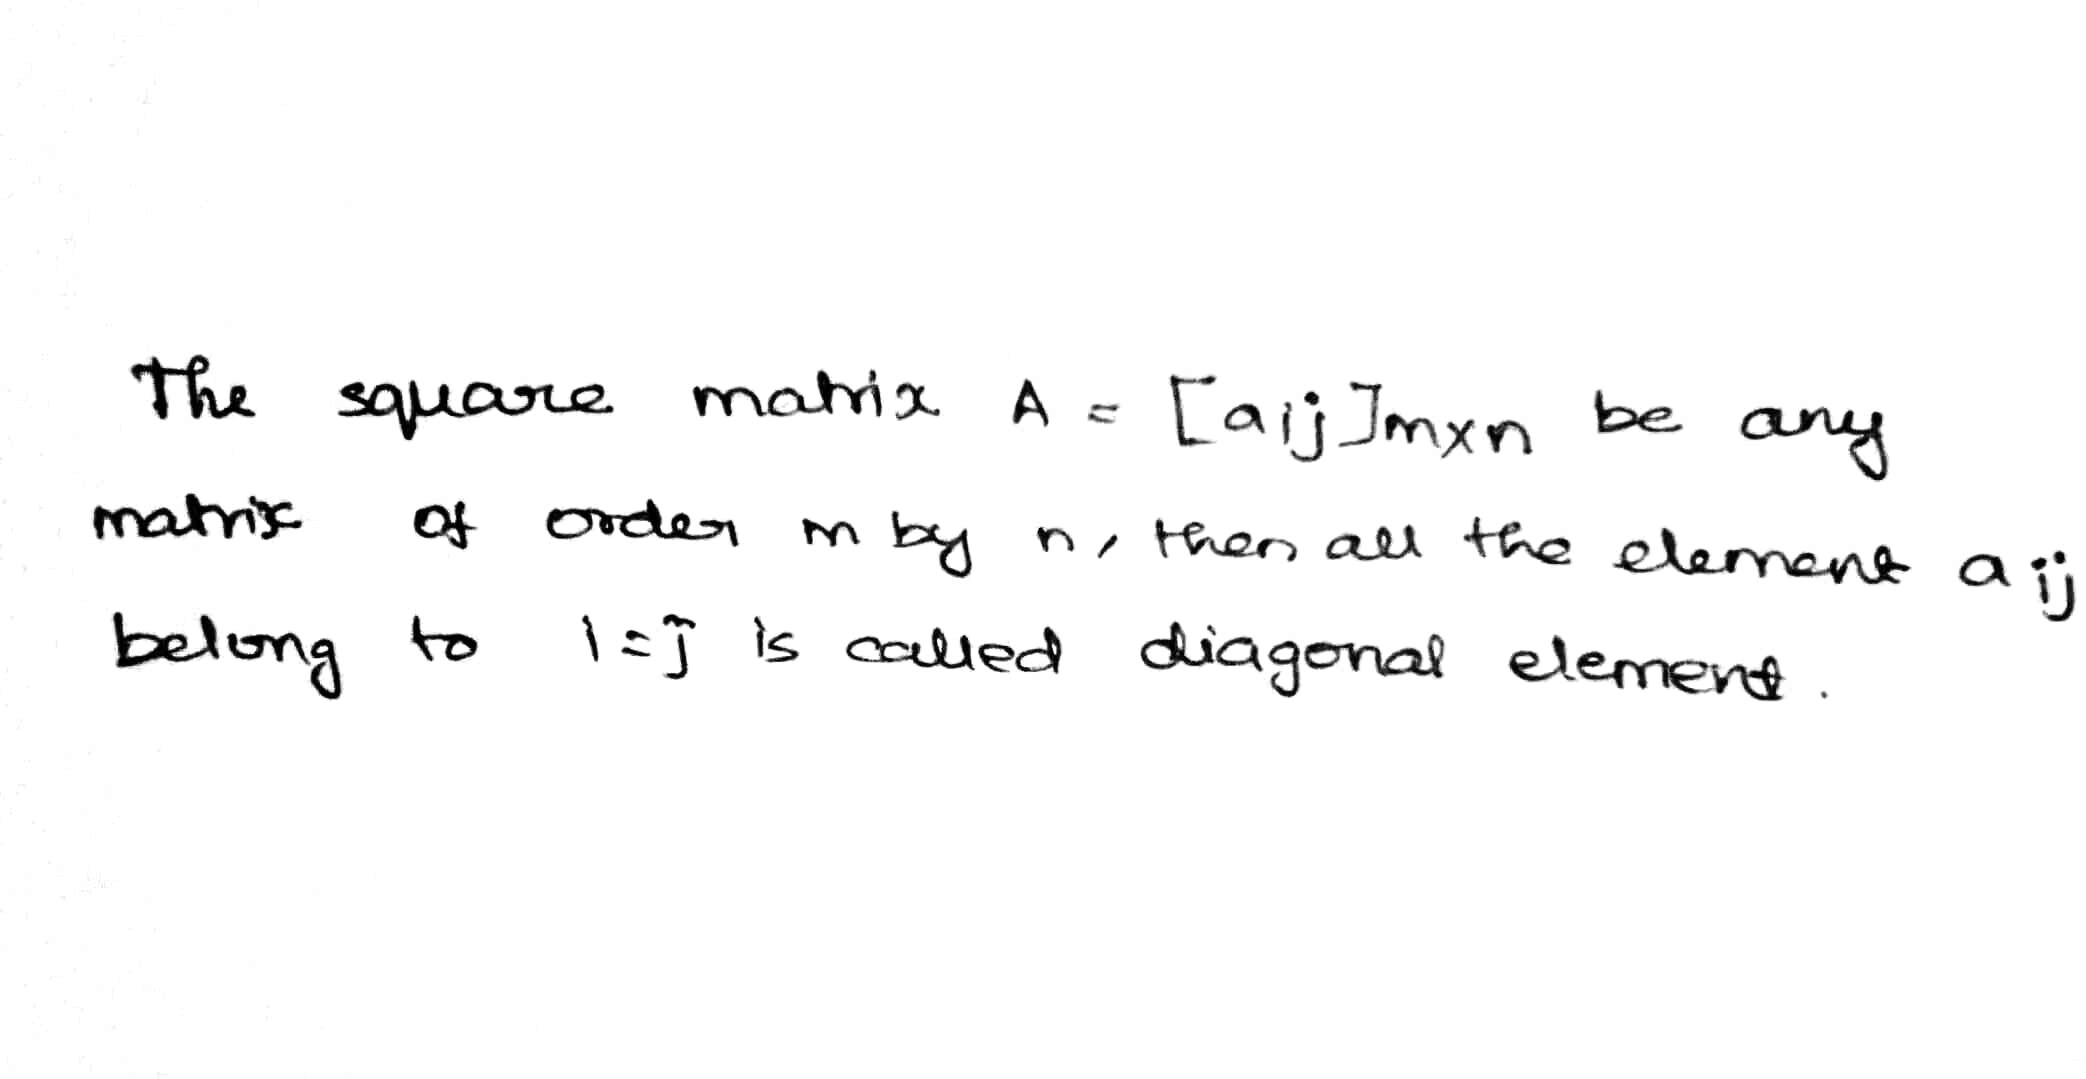 The square matrix A = [aij]mxn be any
matrix of order m by n, then all the element aij
belong to i=j is called diagonal element.